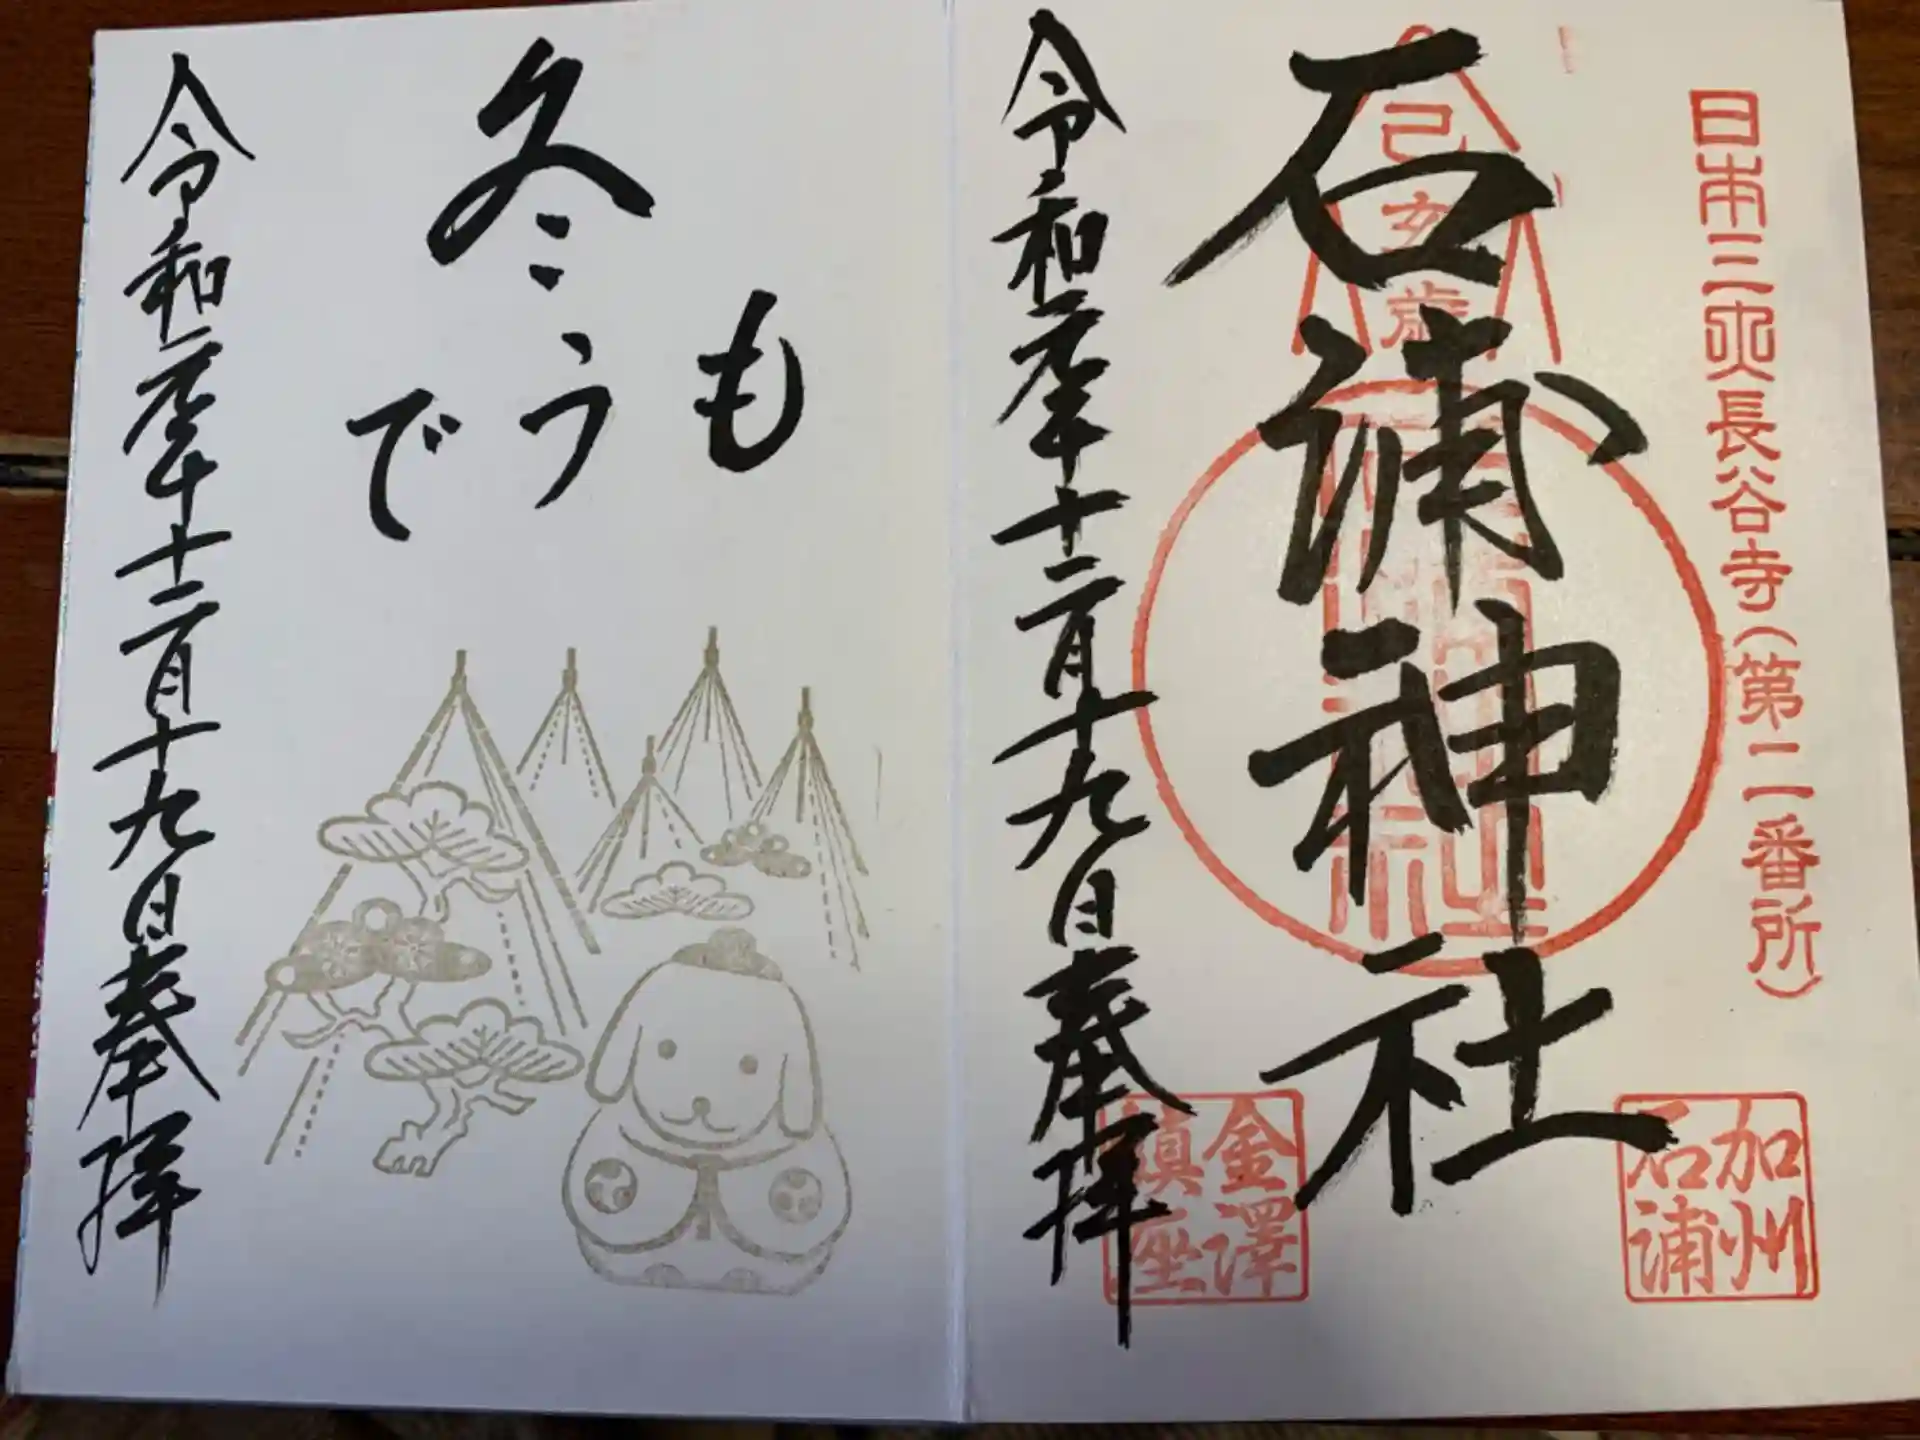 日本三大長谷寺(第二番所)
己亥歳
石浦神社
加州
石浦
金澤
鎮座
令和元年十二月十九日奉拝
冬
も
う
で
令和元年十二月十九日奉拝